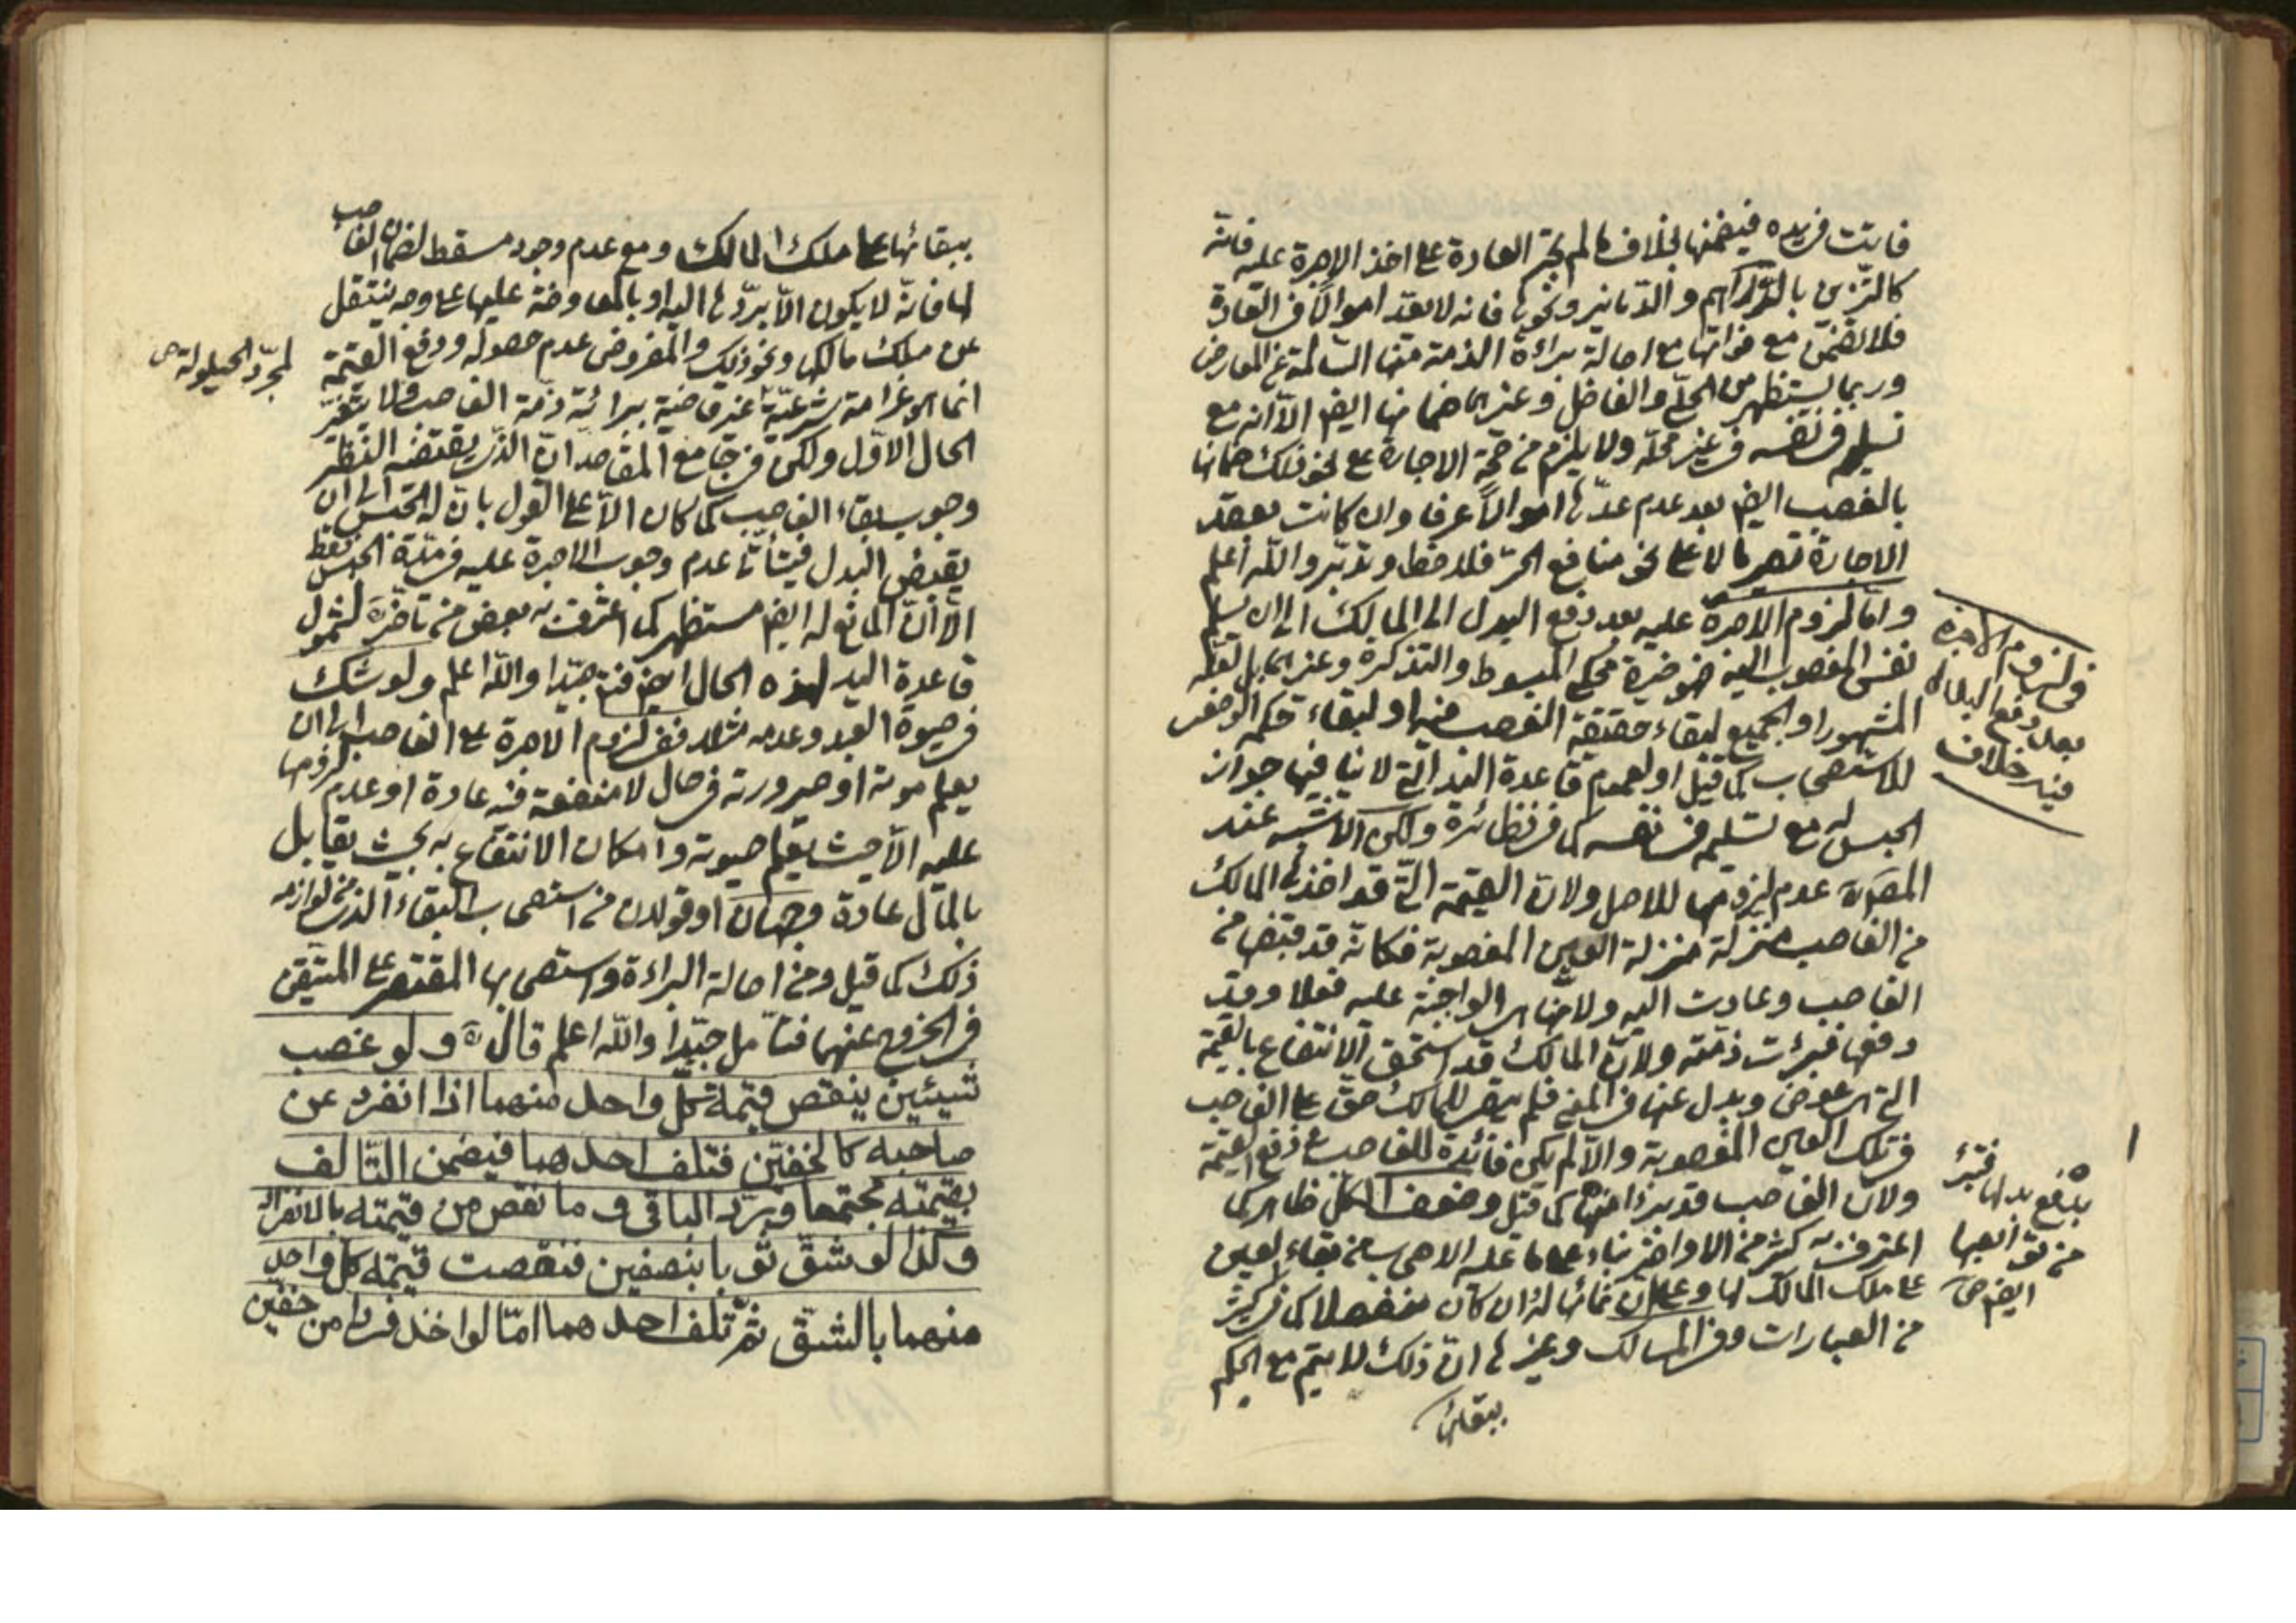 فاتت فى يده فيضمنها بخلاف ما لم تجر العادة على اخذ الاجرة عليه فانه
كالتزين بالدراهم والدنانير ونحوها فانه لا يعد اموالا فى العادة
فلا تضمن مع فواتها مع اصالة براءة الذمة منها السالمة عن المعارض
وربما يستظهر من الحلى والفاضل وغيرهما ضمانها ايضا الا انه مع
تسليمه فى نفسه فى غير محله ولا يلزم من صحة الاجارة على نحو ذلك ضمانها
بالغصب ايضا بعد عدم عدها اموالا عرفا وان كانت بعقد
الاجارة تصير مالا على نحو منافع الحر فلاحظ وتدبر والله اعلم
واما لزوم الاجرة عليه بعد دفع البدل الى المالك الى ان يسلم
نفس المغصوب اليه فهو خيرة محكى المبسوط والتذكرة وغيرهما بل لعله
المشهور او الجميع لبقاء حقيقة الغصب فيه او لبقاء حكمه الوضعى
للاستصحاب كما قيل او لعموم قاعدة اليد التى لا ينافيها جواز
الحبس له مع تسليمه فى نفسه كما فى نظائره ولكن الاشبه عند
المصنف عدم لزومها للاصل ولان القيمة التى قد اخذها المالك
من الغاصب منزلة منزلة العين المغصوبة فكانه قد قبضها من
الغاصب وعادت اليه ولانها هى الواجبة عليه فعلا وقد
دفعها فبرئت ذمته ولان المالك قد استحق الانتفاع بالقيمة
التى هى عوض وبدل عنها فى المعنى فلم يبق للمالك حق على الغاصب
فى تلك العين المغصوبة والا لم يكن فائدة للغاصب فى دفع القيمة
ولان الغاصب قد برء منها كما قيل وضعف الكل ظاهر كما
اعترف به كثير من الاواخر بناء على ما عليه الاصحاب من بقاء العين
على ملك المالك لها وعلى ان نمائها له وان كان منفصلا كما فى كثير
من العبارات وفى المسالك وغيرها ان ذلك لا يتم مع الحكم
ببقائها
فى لزوم الاجرة
بعد دفع البدل
فيه خلاف
بدفع بدلها فتبرء
من توابعها
ايضا ص
ببقائها على ملك المالك ومع عدم وجود مسقط لضمان الغاصب
لها فانه لا يكون الا بردها اليه او بالمعاوضة عليها على وجه ينتقل
عن ملك مالكها ونحو ذلك والمفروض عدم حصوله ودفع القيمة
انما هو غرامة شرعية غير قاضية ببرائة ذمة الغاصب ولا بتغير
الحال الاول ولكن فى جامع المقاصد ان الذى يقتضيه النظر
وجوب بقاء الغاصب كما كان الا على القول بان له الحبس الى ان
يقبض البدل فيتأتى عدم وجوب الاجرة عليه فى مدة الحبس فقط
الا ان المانع له ايضا مستظهر كما اعترف به بعض من تأخر لشمول
قاعدة اليد لهذه الحال ايضا فتدبر جيدا والله اعلم ولو شك
فى حيوة العبد وعدمه مثلا ففى لزوم الاجرة على الغاصب الى ان
يعلم موته او صيرورته فى حال لا منفعة فيه عادة او عدم لزومها
عليه الا حيث يعلم حيوته وامكان الانتفاع به بحيث يقابل
بالمال عادة وجهان او قولان من استصحاب البقاء الذى من لوازمه
ذلك كما قيل ومن اصالة البراءة واستصحابها المقتصر على المتيقن
فى الخروج عنهما فتأمل جيدا والله اعلم قال ره ولو غصب
شيئين ينقص قيمة كل واحد منهما اذا انفرد عن
صاحبه كالخفين فتلف احدهما فيضمن التالف
بقيمته مجتمعا ويرد الباقى وما نقص من قيمته بالانفراد
وكذا لو شق ثوبا بنصفين فنقصت قيمة كل واحد
منهما بالشق ثم تلف احدهما اما لو اخذ فردا من خفين
لمجرد الحيلولة ص